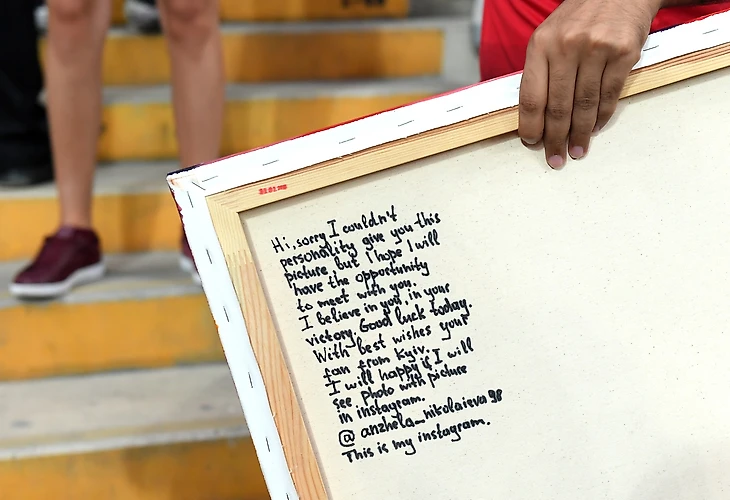 Hi, sorry I couldn't
personality give you this
picture, but I hope I will
have the opportunity
to meet with you.
I believe in you, in your
victory. Good luck today.
With best wishes your
fan from Kyiv.
I will happy if I will
see photo with picture
in instagram.
@anzhela_nikolaieva98
This is my instagram.